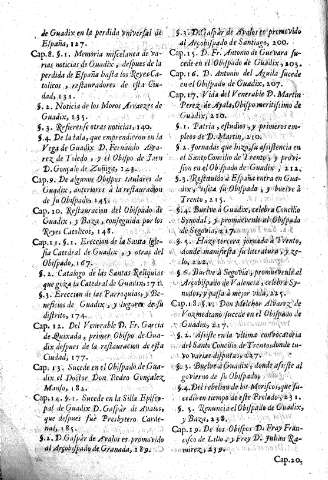 de Guadix en la perdida vniversal de
España, 127.
Cap. 8. §. 1. Memoria miscelanea de va-
rias noticias de Guadix, despues de la
perdida de España hasta los Reyes Ca-
tolicos, restauradores de esta Ciu-
dad, 131.
§. 2. Noticia de los Moros Alcayzes de
Guadix, 135.
§. 3. Refierense otras noticias, 140.
§. 4. De la tala, que emprendieron en la
Vega de Guadix D. Fernando Alva-
rez de Toledo, y el Obispo de Jaen
D. Gonzalo de Zuñiga, 143.
Cap. 9. De algunos Obispos titulares de
Guadix, anteriores à la restauracion
de su Obispado, 145.
Cap. 10. Restauracion del Obispado de
Guadix, y Baza, conseguida por los
Reyes Catolicos, 148.
Cap. 11. §. 1. Ereccion de la Santa Igle-
sia Catedral de Guadix, y otras del
Obispado, 167.
§. 2. Catalogo de las Santas Reliquias
que goza la Catedral de Guadix, 171.
§. 3. Ereccion de las Parroquias, y Be-
neficios de Guadix, y lugares de su
distrito, 174.
Cap. 12. Del Venerable D. Fr. Garcia
de Quixada, primer Obispo de Gua-
dix despues de la restauracion de esta
Ciudad, 177.
Cap. 13. Sucede en el Obispado de Gua-
dix el Doctor Don Pedro Gonzalez
Manso, 182.
Cap. 14. §. 1. Sucede en la Silla Episco-
pal de Guadix D. Gaspar de Avalos,
que despues fue Presbytero Carde-
nal, 185.
§. 2. D. Gaspar de Avalos es promovido
al Arzobispado de Granada, 189.
§. 3. D. Gaspar de Avalos es promovido
al Arzobispado de Santiago, 200.
Cap. 15. D. Fr. Antonio de Guevara su-
cede en el Obispado de Guadix, 203.
Cap. 16. D. Antonio del Aguila sucede
en el Obispado de Guadix, 207.
Cap. 17. Vida del Venerable D. Martin
Perez de Ayala, Obispo meritissimo de
Guadix, 210.
§. 1. Patria, estudios, y primeros em-
pleos de D. Martin, 210.
§. 2. Jornadas que hizo, su assistencia en
el Santo Concilio de Trento, y provi-
sion en el Obispado de Guadix, 212.
§. 3. Restituido à España entra en Gua-
dix, visita su Obispado, y buelve à
Trento, 215.
§. 4. Buelve à Guadix, celebra Concilio
Synodal, y promuevenle al Obispado
de Segovia, 217.
§. 5. Haze tercera jornada à Trento,
donde manifiesta su literatura, y ze-
lo, 222.
§. 6. Buelve à Segovia, promuevenle al
Arzobispado de Valencia, celebra Sy-
nodo, y passa à mejor vida, 225.
Cap. 18. §. 1. Don Melchor Alvarez de
Vozmediano sucede en el Obispado de
Guadix, 227.
§. 2. Assiste en la vltima convocatoria
del Santo Concilio de Trento, donde tu-
vo varias disputas, 227.
§. 3. Buelve à Guadix, donde assiste al
govierno de su Obispado,
§. 4. Del rebelion de los Moriscos, que su-
cedió en tiempo de este Prelado, 231.
§. 5. Renuncia el Obispado de Guadix,
y Baza, 238.
Cap. 19. De los Obispos D. Fray Fran-
cisco de Lillo, y Fray D. Julian Ra-
mirez, 239.
Cap. 20.